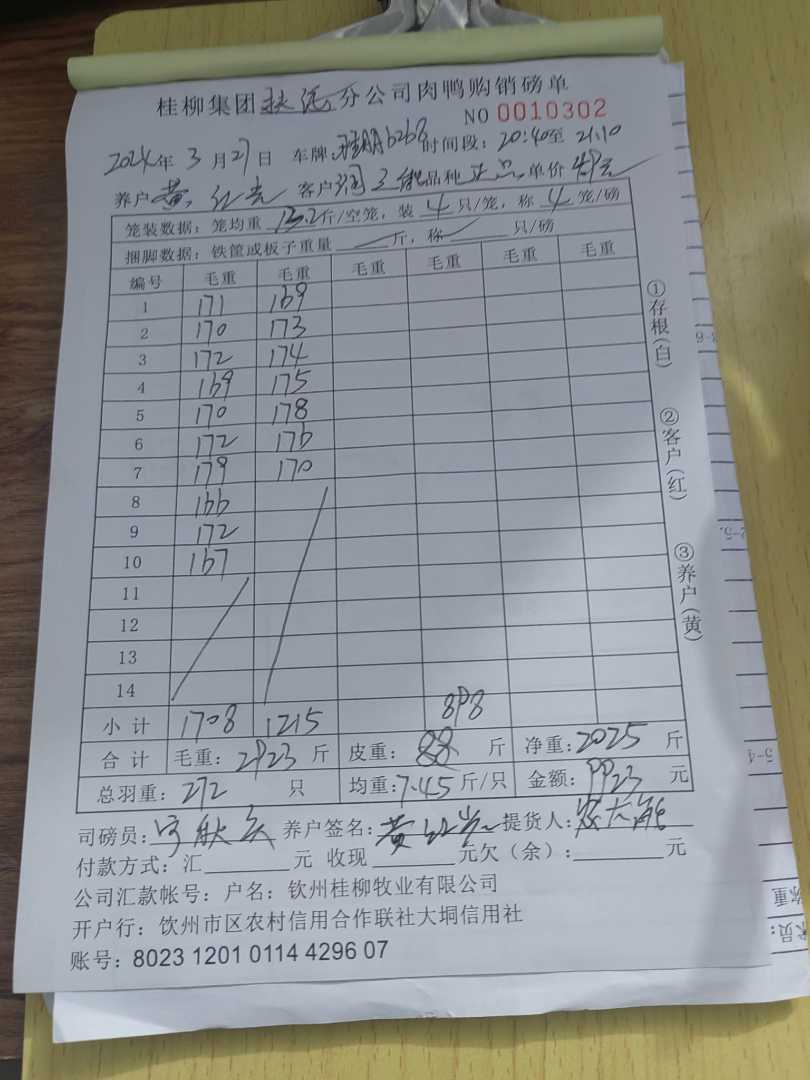 桂柳集团扶绥分公司肉鸭购销磅单
NO 0010302
2024年 3月27日 车牌: 6268 时间段: 20:40至 21:10
养户 黄 客户 品种 正品 单价
笼装数据: 笼均重 13.2斤/空笼, 装 4 只/笼, 称 4 笼/磅
捆脚数据: 铁筐或板子重量 斤, 称 只/磅
编号 毛重 毛重 毛重 毛重 毛重 毛重
1 171 169
2 170 173
3 172 174
4 169 175
5 170 178
6 172 176
7 179 170
8 166
9 172
10 167
11
12
13
14
小计 1708 1215 898
合计 毛重: 2923 斤 皮重: 斤 净重: 2025 斤
总羽重: 272 只 均重: 7.45 斤/只 金额: 9923 元
司磅员: 养户签名: 黄 提货人:
付款方式: 汇 元 收现 元欠(余): 元
公司汇款帐号: 户名: 钦州桂柳牧业有限公司
开户行: 钦州市区农村信用合作联社大垌信用社
账号: 8023 1201 0114 4296 07
①存根(白)
②客户(红)
③养户(黄)